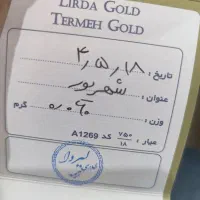 LIRDA GOLD
TERMEH GOLD
تاریخ : ۴,۵,۱۸
عنوان : شهریور
وزن : گرم
عیار : ۷۵۰/۱۸ کد A1269